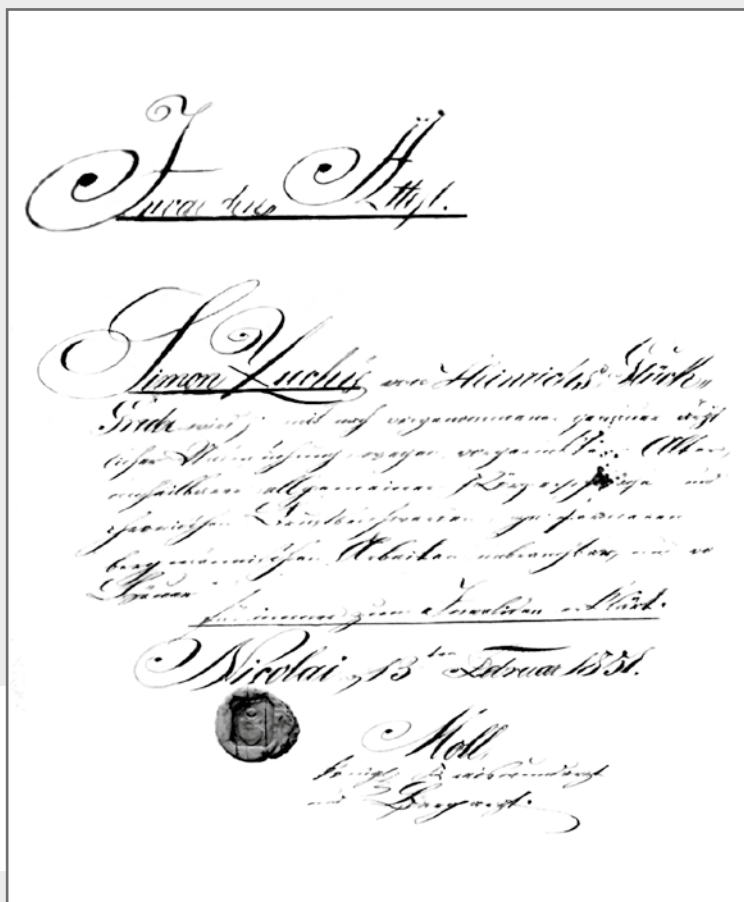 Invaliden Attest.
Simon Zuchy von Heinrichs Glück
Grube wird, mit nach vorgenommener genauer ärzt
licher Untersuchung wegen vorgerückten Alter,
unheilbarer allgemeiner Körperschwäche und
chronischen Brustbeschwerden zu ferneren
bergmännischen Arbeiten unbrauchbar, und
für immer zum Invaliden erklärt.
Nicolai, 13ten Februar 1851.
Moll,
Königl. Kreiswundarzt
und Bergarzt.